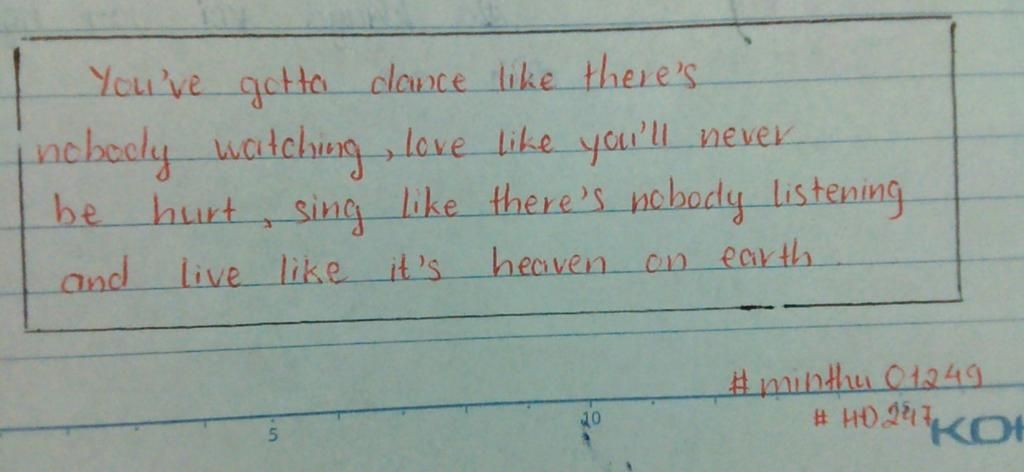 You've gotta dance like there's
nobody watching, love like you'll never
be hurt, sing like there's nobody listening
and live like it's heaven on earth
#minthu01249
#HD247
5
10